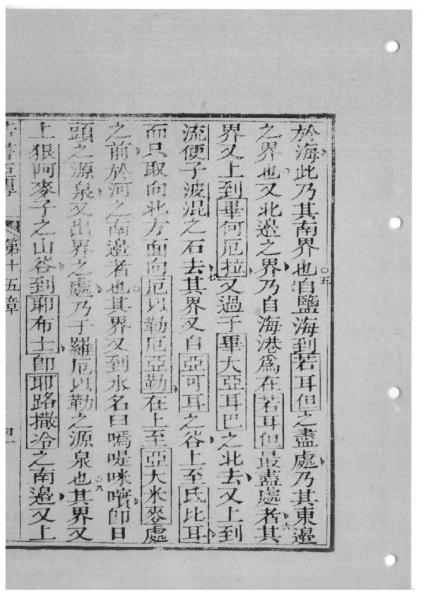 於海此乃其南界也○五自鹽海到若耳但之盡處乃其東邊
之界也又北邊之界乃自海港爲在若耳但最盡處者○六其
界又上到畢何厄拉又過于畢大亞耳巴之北去又上到
流便子波混之石去○七其界又自亞可耳之谷上至氐比耳
而只取向北方面向厄以勒厄亞勒在上至亞大米麥處
之前於河之南邊者也其界又到水名曰嘕唗咪嚝即日
頭之源泉又出界之處乃于羅厄以勒之源泉也○八其界又
上狠阿麥子之山谷到耶布士即耶路撒冷之南邊又上
第十五章